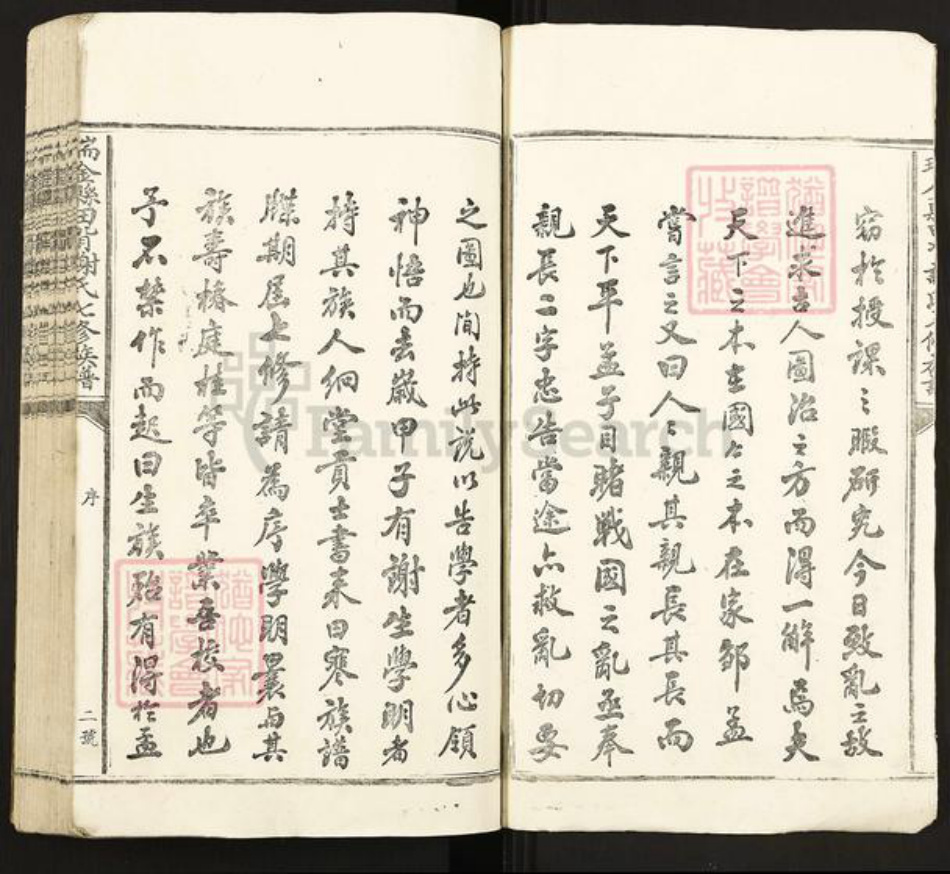 竊於授課之暇研究今日致亂之故
進求古人圖治之方而得一解焉夫
天下之本在國國之本在家鄒孟
嘗言之又曰人人親其親長其長而
天下平孟子目睹戰國之亂亟奉
親長二字忠告當途亦救亂切要
之圖也間持此說以告學者多心領
神悟而去歲甲子有謝生學明者
持其族人絅堂貢士書來曰寒族譜
牒期屆上修請為序學明曩與其
族壽椿庭桂等皆卒業吾校者也
予不禁作而起曰生族殆有得於孟
瑞金縣田背謝氏七修族譜
序
二號
FamilySearch